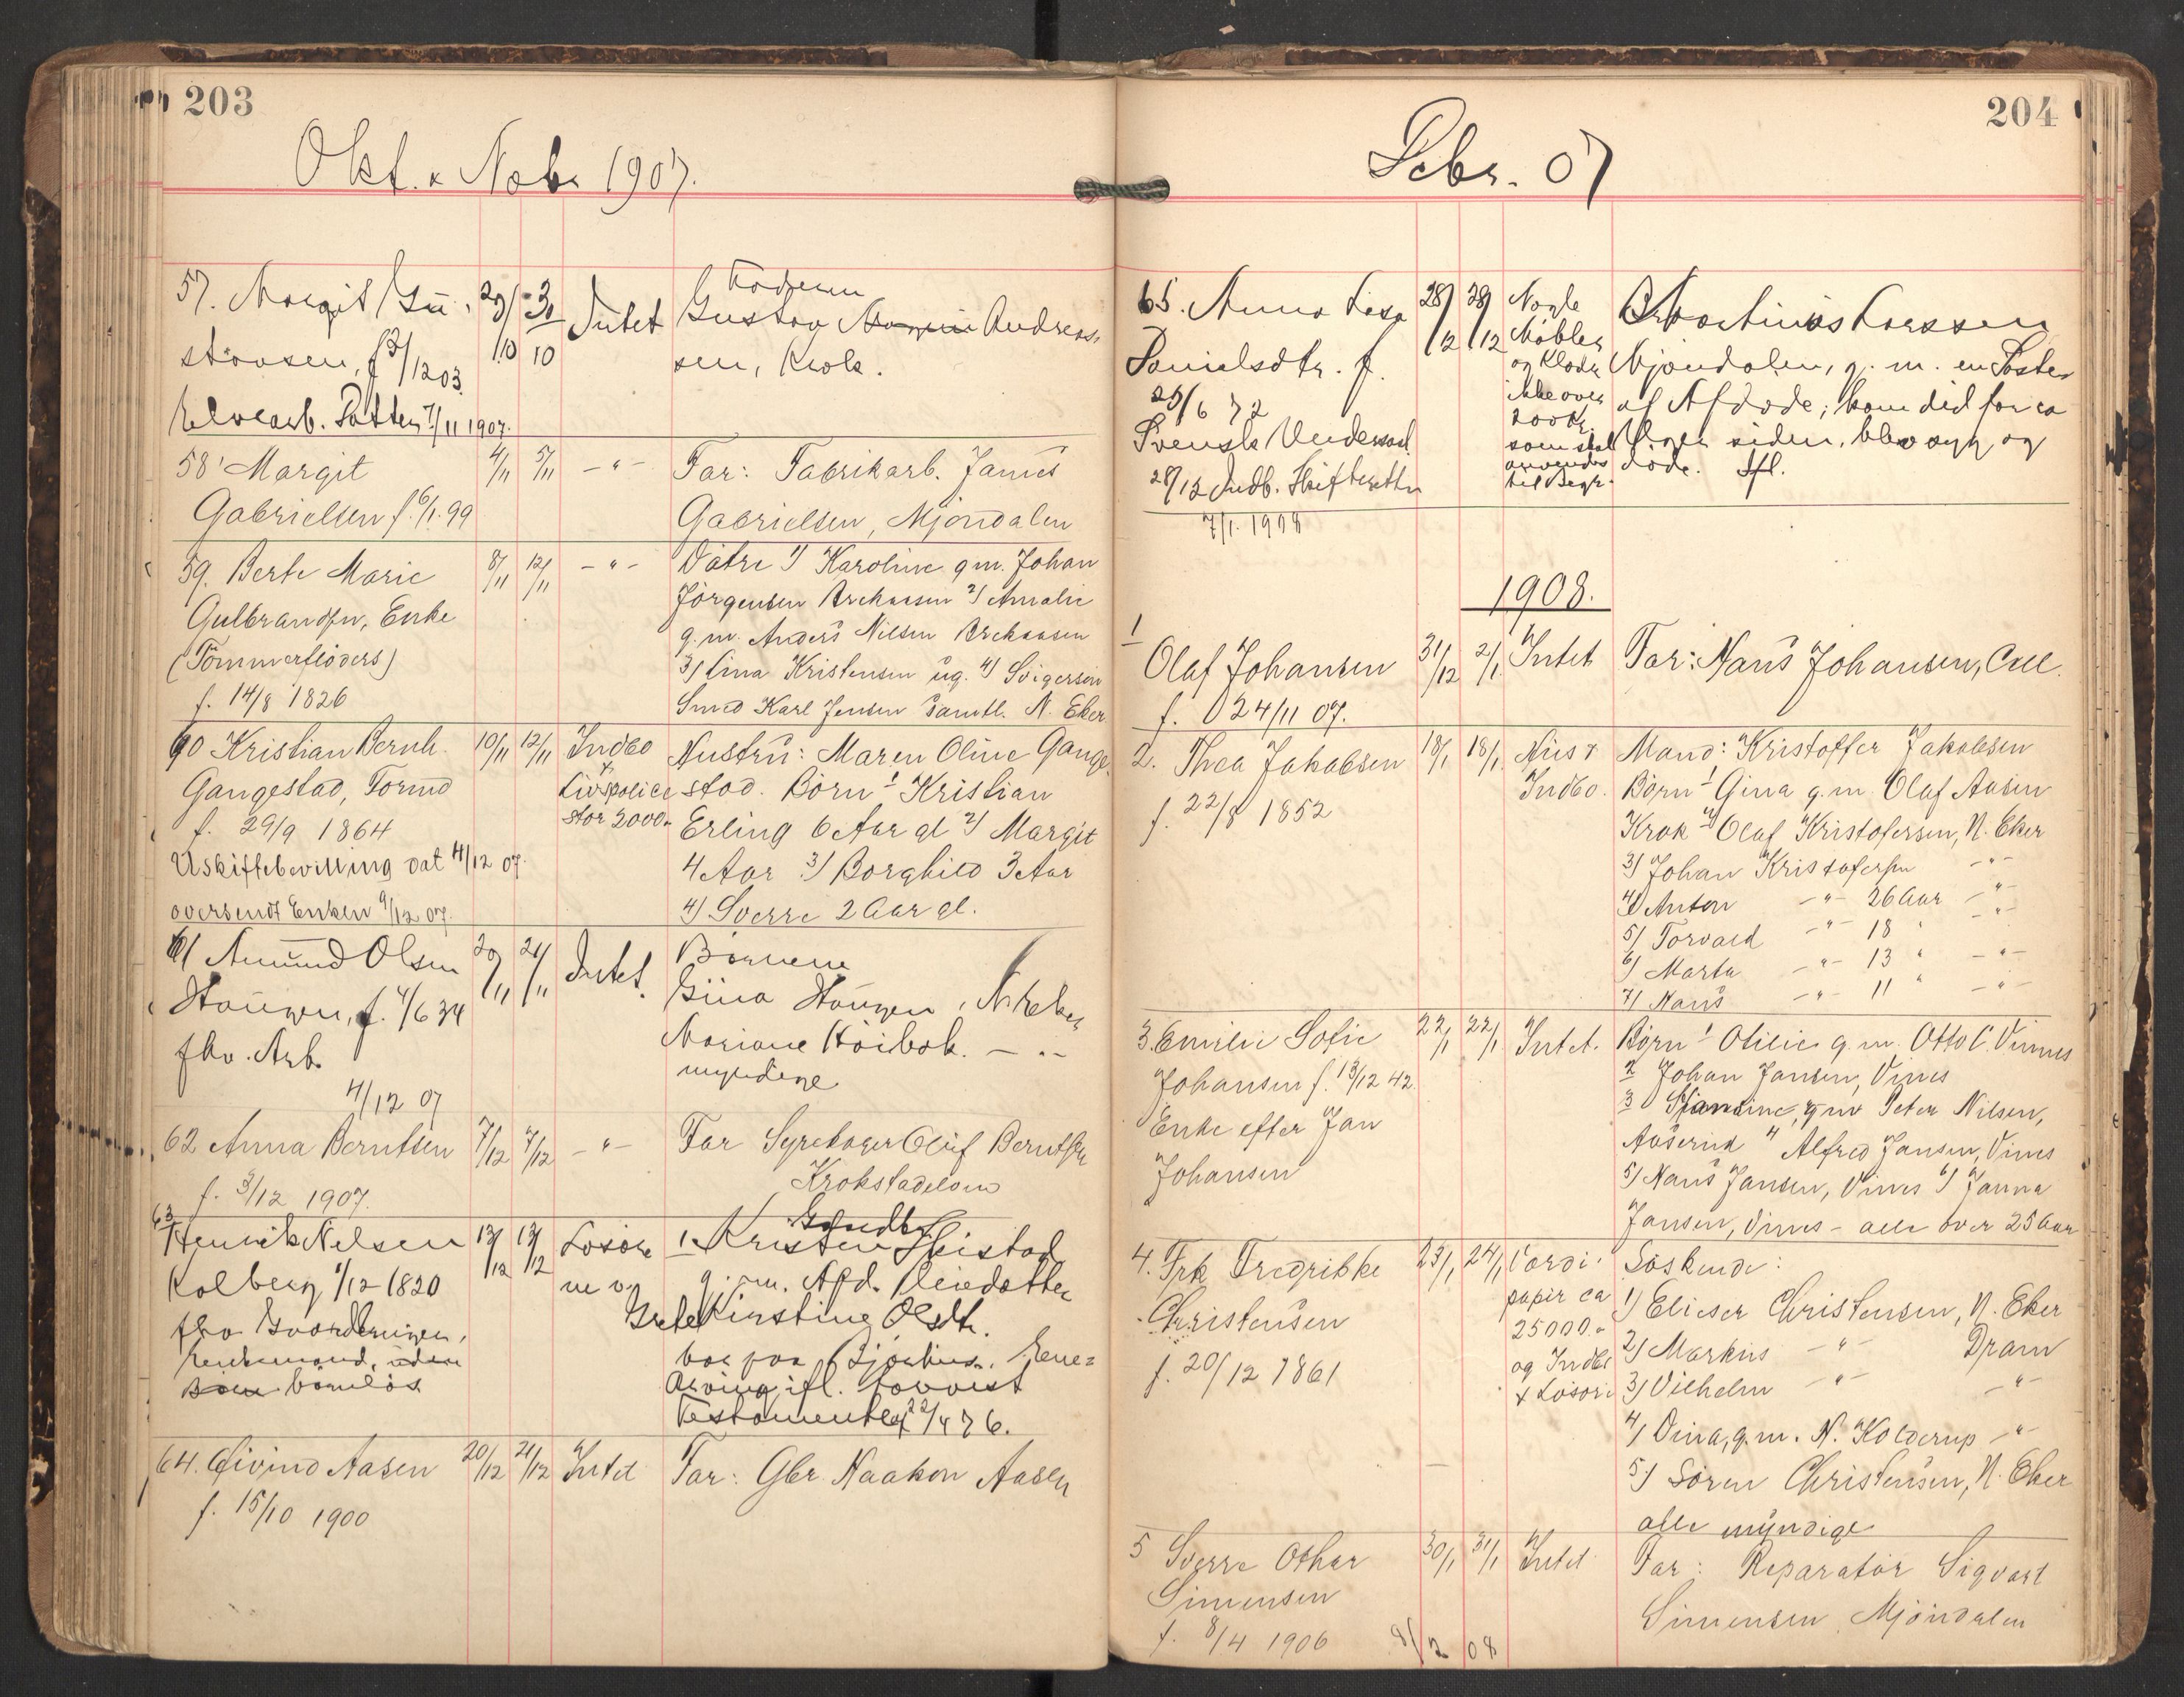 203
Okt. & Nobr 1907.
57. Margit Gu-
stavsen, f. 3/12 03
Elvearb. Datter 7/11 1907.
29/10 30/10
Intet
Gustav Andreas-
sen, Krok.
58 Margit
Gabrielsen f. 6/1 99
4/11 5/11 - " -
Far: Fabrikarb. James
Gabrielsen, Mjöndalen
59. Berte Marie
Gulbrandsen, Enke
(Tömmerflöders)
f. 14/8 1826
8/11 12/11 - " -
Dötre 1) Karoline g.m. Johan
Jörgensen 2) Amalie
g.m. Anders Nilsen
3) Lina Kristensen ug. 4) Svigersön
Smed Karl Jensen samtl. N. Eker
60 Kristian Bernh.
Gangestad, Formd
f. 29/9 1864
Uskiftebevilling dat 4/12 07.
oversendt Enken 9/12 07.
10/11 12/11
Indbo
+
Livspolice
stor 2000.-
Hustru: Maren Oline Gange-
stad. Börn 1 Kristian
Erling 6 Aar gl 2) Margit
4 Aar 3) Borghild 3 Aar
4) Sverre 2 Aar gl.
61 Amund Olsen
Haugen, f. 4/6 34
fhv. Arb.
4/12 07
20/11 21/11
Intet.
Börnene
Gina Haugen, N. Eker
Mariane Höibak. - " -
myndige
62 Anna Berntsen
f. 3/12 1907.
7/12 7/12 - " -
Far Olaf Berntsen
Krokstadelven
63
Henrik Nelsen
Kolberg 1/12 1820
fhv
barnlös
13/12 13/12
Lösöre
1. Kristen Skistad
g.m. Afd. Pleiedatter
Kirstine Olsdtr.
Ene-
arving ifl.
Testamente af 22/4 76.
64. Eivind Aasen
f. 15/10 1900
20/12 21/12 Intet
Far: Gbr. Haakon Aasen
204
Debr. 07
65. Anna Lisa
Danielsdtr. f.
25/6 72
Svensk Undersaat
28/12 Indb. Skifteretten
7/1. 1908
28/12 28/12
Nogle
Möbler
og Klæder
ikke over
200 kr.
som skal
anvendes
til Begr.
Larssen
Mjöndalen, g. m. en Söster
af Afdöde; kom did for ca
siden, blev syg og
döde. Ifl.
1908.
1
Olaf Johansen
f. 24/11 07.
31/12 2/1 Intet
Far: Hans Johansen,
2. Thea Jakobsen
f. 22/8 1852
18/1 18/1 Hus &
Indbo.
Mand: Kristoffer Jakobsen
Börn 1 Gina g.m. Olaf Aasen
Krok 2) Olaf Kristofersen, N. Eker
3) Johan Kristofersen - " -
4) Anton - " - 26 Aar - " -
5) Torvald - " - 18 " - " -
6) Marta - " - 13 " - " -
7) Hans - " - 11 " - " -
3. Emilie Sofie
Johansen f. 13/12 42
Enke efter Jan
Johansen
22/1 22/1 Intet.
Börn 1 Otilie g.m. Otto C. Vinnes
2 Johan Jansen, Vines
3 gm Peter Nilsen,
Aaserud 4 Alfred Jansen, Vines
5) Hans Jansen, Vines 6) Janna
Jansen, Vines - alle over 25 Aar
4. Frk Fredrikke
Christensen
f. 20/12 1861
23/1 24/1 Værdi-
papir ca
25000.-
og Indbo
& Lösöre
Söskende:
1) Elieser Christensen, N. Eker
2) Markus - " - Dram
3) Vilhelm - " - - " -
4) Dina, g.m. N. Kolderup - " -
5) Sören Christensen, N. Eker
alle myndige
5 Sverre Othar
Simensen
f. 8/4 1906
8/2 08
30/1 31/1 Intet
Far: Reparatör Sigvart
Simensen, Mjöndalen